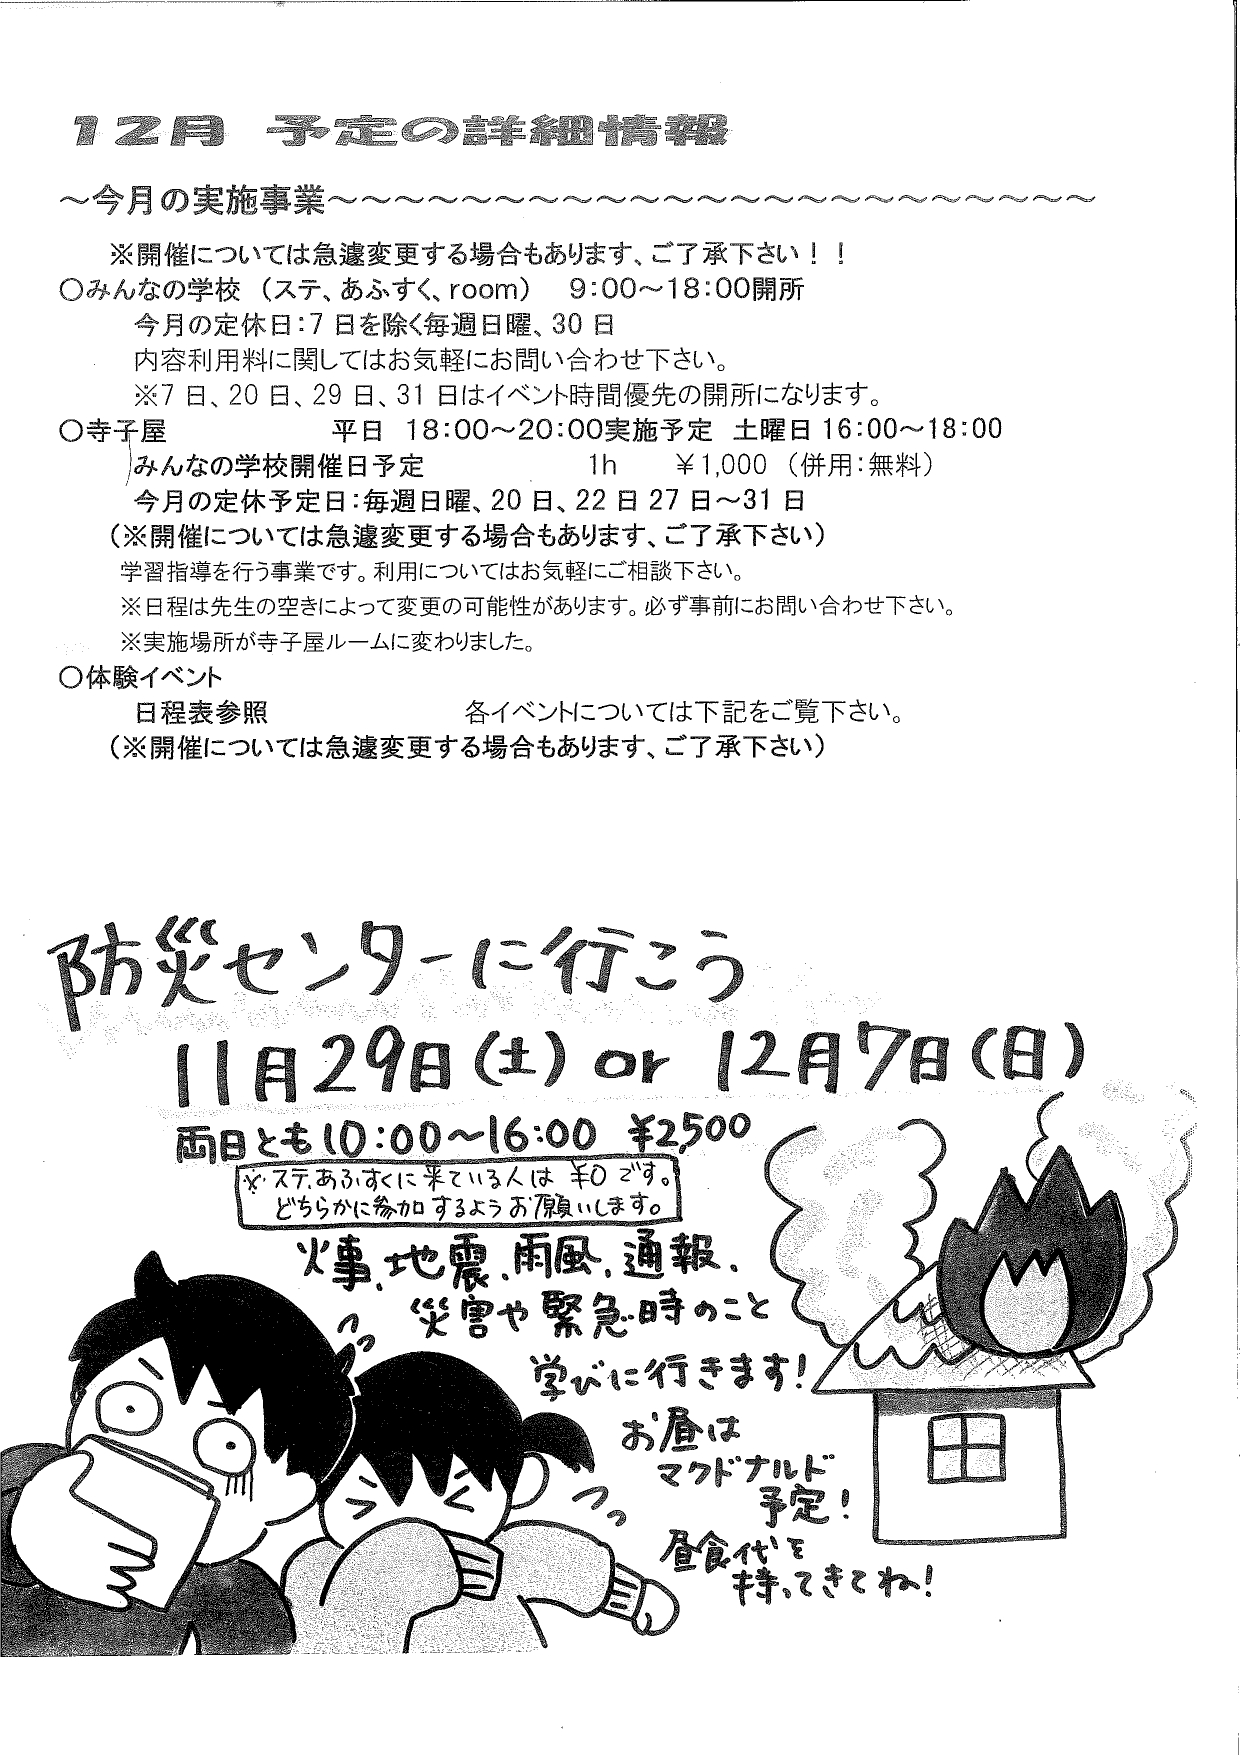 12月　予定の詳細情報
～今月の実施事業～～～～～～～～～～～～～～～～～～～～～～～
※開催については急遽変更する場合もあります、ご了承下さい！！
○みんなの学校（ステ、あふすく、room）　9：00～18：00開所
今月の定休日：7日を除く毎週日曜、30日
内容利用料に関してはお気軽にお問い合わせ下さい。
※7日、20日、29日、31日はイベント時間優先の開所になります。
○寺子屋　平日　18：00～20：00実施予定　土曜日16：00～18：00
みんなの学校開催日予定　1h　￥1,000（併用：無料）
今月の定休予定日：毎週日曜、20日、22日27日～31日
（※開催については急遽変更する場合もあります、ご了承下さい）
学習指導を行う事業です。利用についてはお気軽にご相談下さい。
※日程は先生の空きによって変更の可能性があります。必ず事前にお問い合わせ下さい。
※実施場所が寺子屋ルームに変わりました。
○体験イベント
日程表参照　各イベントについては下記をご覧下さい。
（※開催については急遽変更する場合もあります、ご了承下さい）
防災センターに行こう
11月29日（土）or 12月7日（日）
両日とも10：00～16：00 ￥2,500
※ステ、あふすくに来ている人は ￥0 です。
どちらかに参加するようお願いします。
火事、地震、雨風、通報、
災害や緊急時のこと
学びに行きます！
お昼は
マクドナルド
予定！
昼食代を
持ってきてね！